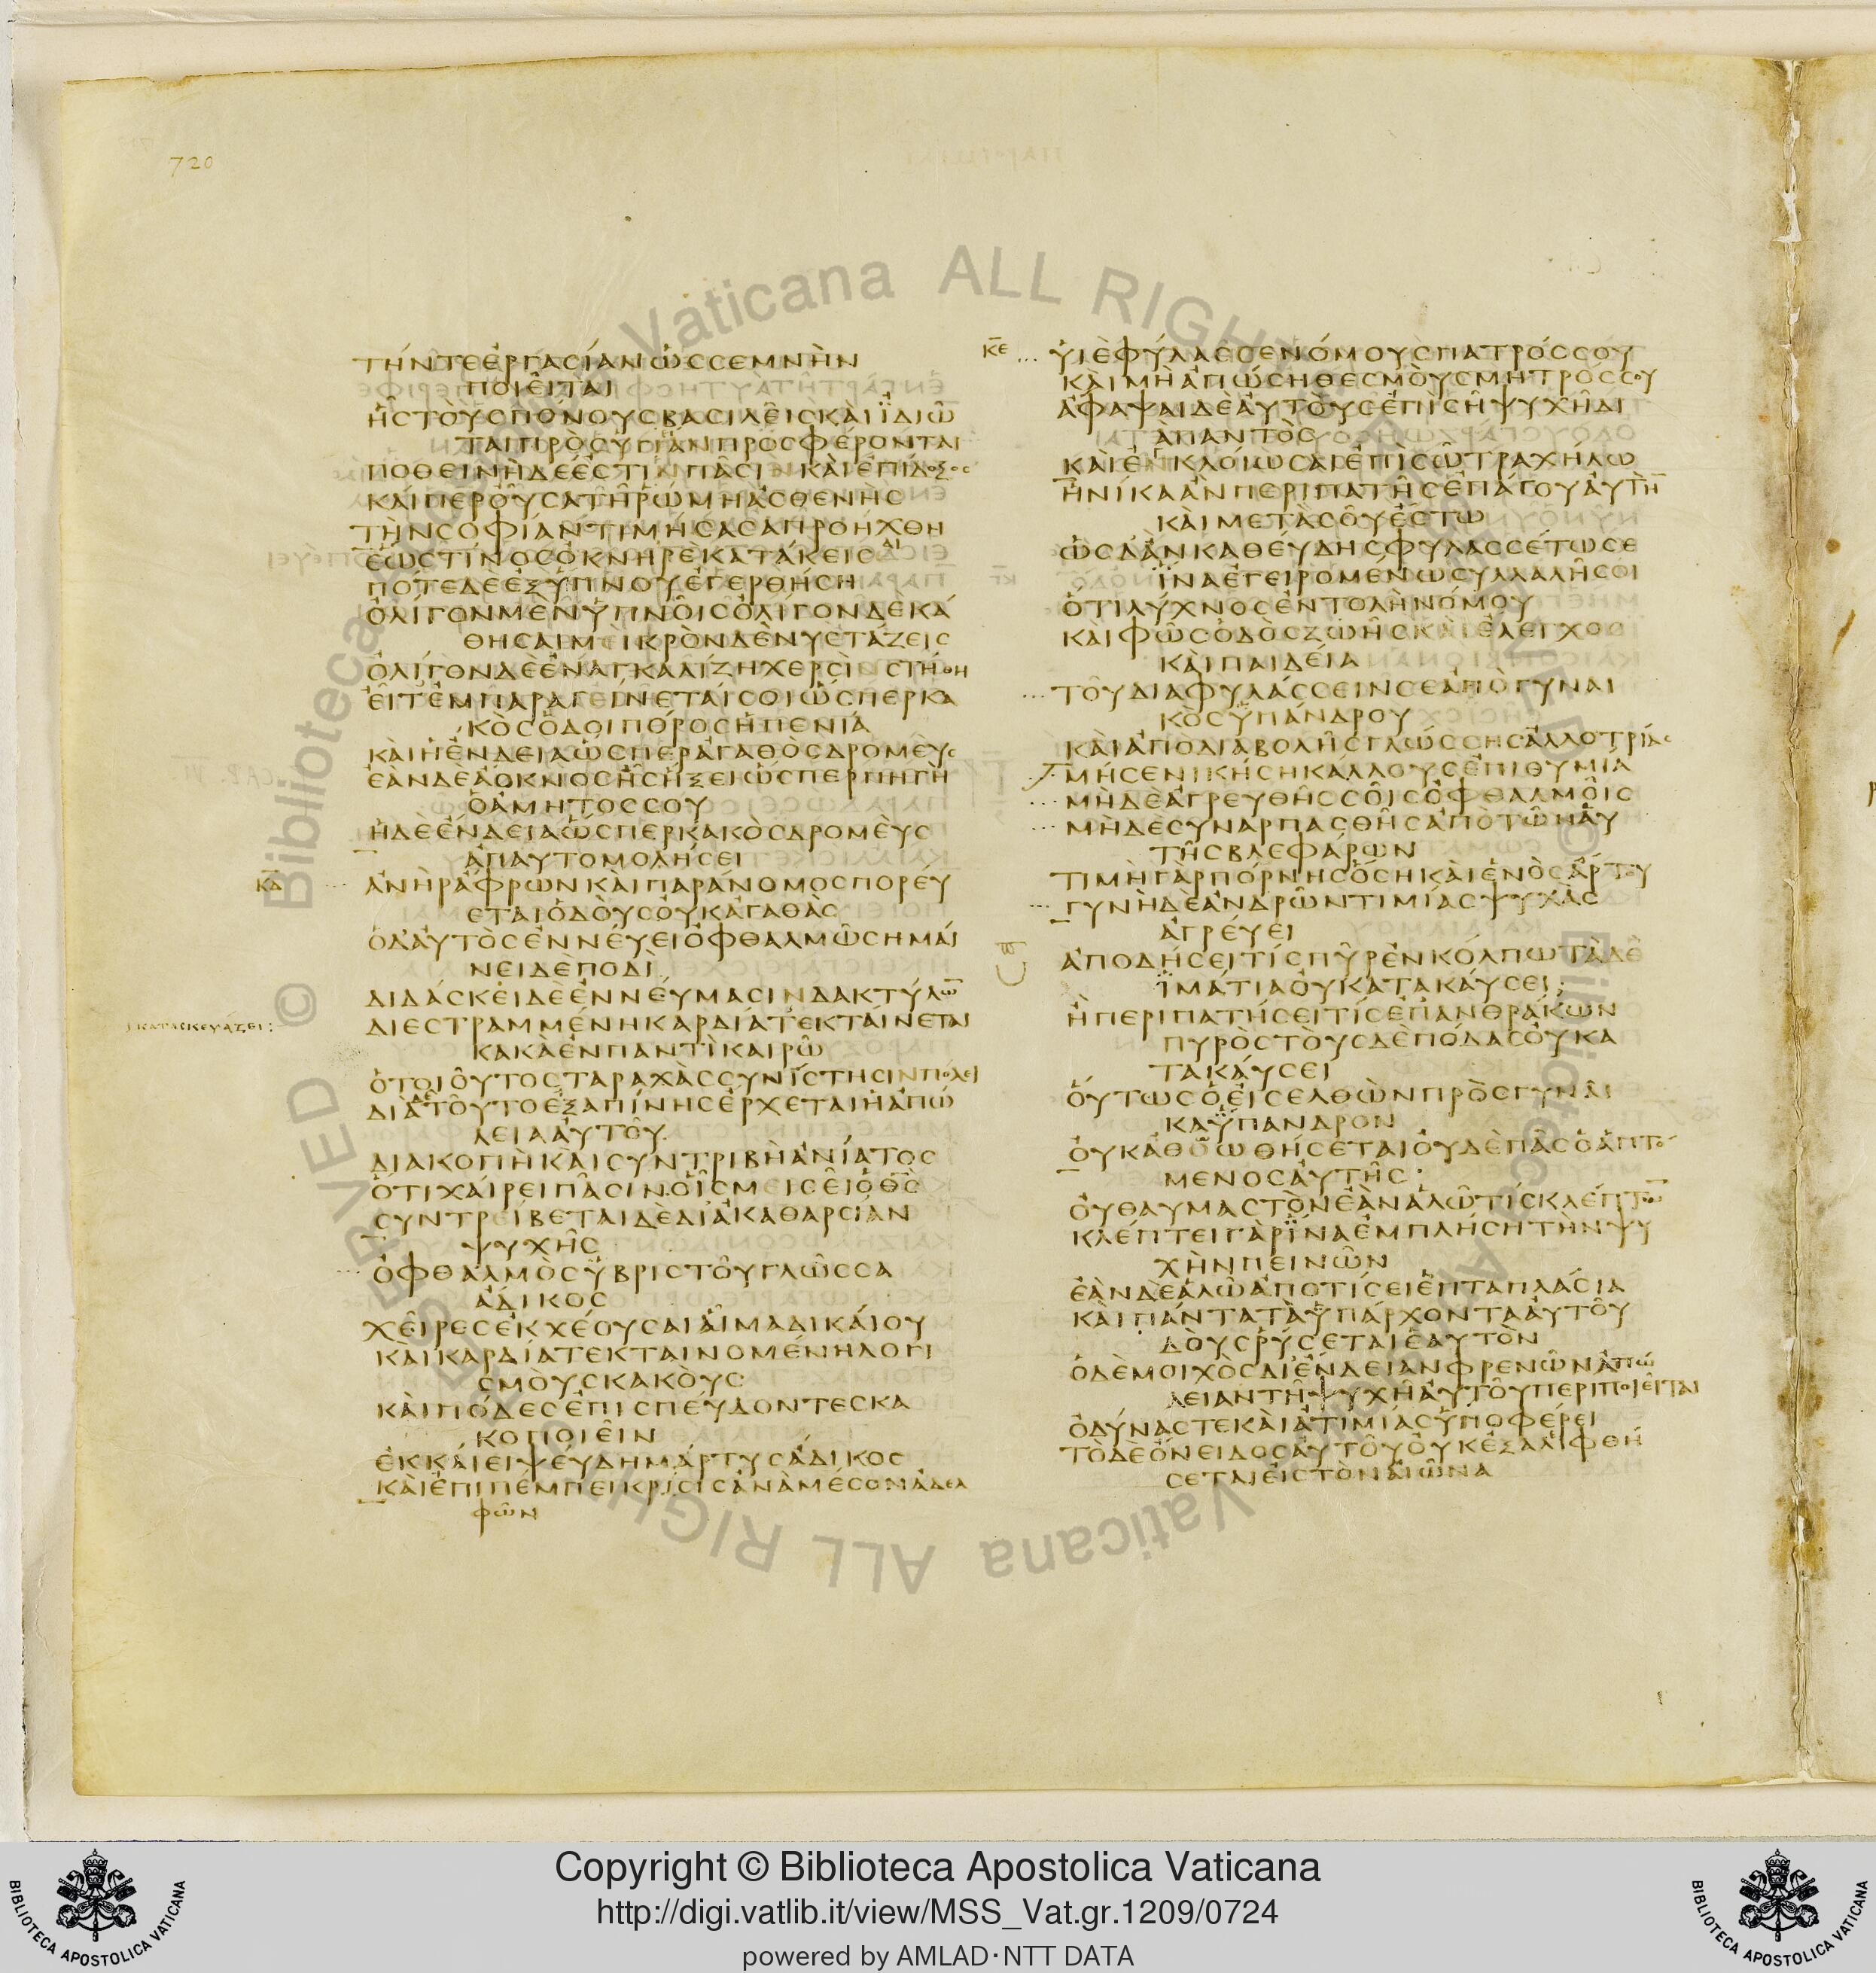 720
ΤΉΝΤΕἘΡΓΑΣΊΑΝὩΣΣΕΜΝῊΝ
ΠΟΙΕῖΤΑΙ
ἯΣΤΟῪΣΠΌΝΟΥΣΒΑΣΙΛΕῖΣΚΑῚΪΔΙῶ̅
ΤΑΙΠΡῸΣΥΓΙΑΝΠΡΟΣΦΈΡΟΝΤΑΙ
ΠΟΘΕΙΝῊΔΈἘΣΤΙΝΠᾶΣΙΝΚΑῚἘΠΊΔΟΞΟΣ
ΚΑΊΠΕΡΟὖΣΑΤῆῬΏΜΗἈΣΘΕΝῊΣ
ΤῊΝΣΟΦΊΑΝΤΙΜΉΣΑΣΑΠΡΟΉΧΘΗ
ἝΩΣΤΊΝΟΣὈΚΝΗΡῈΚΑΤΆΚΕΙΣΑΙ
ΠΌΤΕΔΕἘΞΎΠΝΟΥἘΓΕΡΘΉΣΗ
ὈΛΊΓΟΝΜῈΝὙΠΝΟῖΣὈΛΊΓΟΝΔῈΚΆ
ΘΗΣΑΙΜΕΙΚΡῸΝΔῈΝΥΣΤΆΖΕΙΣ
ὈΛΊΓΟΝΔῈἘΝΑΓΚΑΛΊΖΗΧΕΡΣῚΝΣΤΉΘΗ
ΕἾΤἘΜΠΑΡΑΓΕΊΝΕΤΑΊΣΟΙὭΣΠΕΡΚΑ
ΚῸΣὉΔΟΙΠΌΡΟΣἩΠΕΝΊΑ
ΚΑῚἩἜΝΔΕΙΑὭΣΠΕΡἈΓΑΘῸΣΔΡΟΜΕῪΣ
ἘᾺΝΔῈἌΟΚΝΟΣἮΣἭΞΕΙὭΣΠΕΡΠΗΓῊ
ὉἈΜΗΤΟΣΣΟΥ
ἩΔῈἜΝΔΕΙΑὭΣΠΕΡΚΑΚῸΣΔΡΟΜΕῪΣ
ἈΠΑΥΤΟΜΟΛΉΣΕΙ
Κ̅Δ̅ ἈΝῊΡἌΦΡΩΝΚΑῚΠΑΡΆΝΟΜΟΣΠΟΡΕΎ
ΕΤΑΙὉΔΟῪΣΟὐΚἈΓΑΘᾺΣ
ὉΔΑὐΤῸΣἘΝΝΕΎΕΙὈΦΘΑΛΜῶΣΗΜΑΊ
ΝΕΙΔῈΠΟΔῚ
ΔΙΔΆΣΚΕΙΔῈἘΝΝΕΎΜΑΣΙΝΔΑΚΤΎΛΩ̅
ΚΑΤΑΣΚΕΥΆΖΕΙ: ΔΙΕΣΤΡΑΜΜΈΝΗΚΑΡΔΊΑΤΕΚΤΑΊΝΕΤΑΙ
ΚΑΚᾺἘΝΠΑΝΤῚΚΑΙΡῶ
ὉΤΟΙΟὗΤΟΣΤΑΡΑΧᾺΣΣΥΝΊΣΤΗΣΙΝΠΌΛΕΙ
ΔΙΑΤΟῦΤΟἘΞΑΠΊΝΗΣἜΡΧΕΤΑΙἩἈΠΏ
ΛΕΙΑΑὐΤΟῦ
ΔΙΑΚΟΠῊΚΑῚΣΥΝΤΡΙΒῊἈΝΊΑΤΟΣ
ὍΤΙΧΑΊΡΕΙΠᾶΣΙΝΟἷΣΜΕΙΣΕῖὉΘ̅Σ̅
ΣΥΝΤΡΕΊΒΕΤΑΙΔῈΔΙἈΚΑΘΑΡΣΊΑΝ
ΨΥΧῆΣ
ὈΦΘΑΛΜῸΣὙΒΡΙΣΤΟῦΓΛῶΣΣΑ
ἌΔΙΚΟΣ
ΧΕῖΡΕΣἘΚΧΈΟΥΣΑΙΑἷΜΑΔΙΚΑΊΟΥ
ΚΑῚΚΑΡΔΊΑΤΕΚΤΑΙΝΟΜΈΝΗΛΟΓΙ
ΣΜΟῪΣΚΑΚΟῪΣ
ΚΑῚΠΌΔΕΣἘΠΙΣΠΕΎΔΟΝΤΕΣΚΑ
ΚΟΠΟΙΕῖΝ
ἘΚΚΑΊΕΙΨΕΎΔΗΜΆΡΤΥΣἌΔΙΚΟΣ
ΚΑῚἘΠΙΠΈΜΠΕΙΚΡΊΣΙΣἈΝᾺΜΈΣΟΝἈΔΕΛ
ΦῶΝ
Κ̅Ε̅ ΥἹῈΦΎΛΑΣΣΕΝΌΜΟΥΣΠΑΤΡΌΣΣΟΥ
ΚΑῚΜῊἈΠΏΣΗΘΕΣΜΟῪΣΜΗΤΡΌΣΣΟΥ
ἌΦΑΨΑΙΔῈΑὐΤΟῪΣἘΠῚΣῆΨΥΧῆΔΙ
ᾺΠΑΝΤῸΣ
ΚΑῚἘΓΚΛΟΊΩΣΑΙἘΠῚΣῶΤΡΑΧΉΛΩ
ἩΝΊΚΑἊΝΠΕΡΙΠΑΤῆΣἘΠΆΓΟΥΑὐΤῊ̅
ΚΑῚΜΕΤᾺΣΟῦἜΣΤΩ
ὩΣΔἊΝΚΑΘΕΎΔΗΣΦΥΛΑΣΣΈΤΩΣΕ
ἽΝΑἘΓΕΙΡΟΜΈΝΩΣΥΛΛΑΛῆΣΟΙ
ὍΤΙΛΎΧΝΟΣἘΝΤΟΛῊΝΌΜΟΥ
ΚΑῚΦῶΣὉΔῸΣΖΩῆΣΚΑῚἜΛΕΓΧΟΣ
ΚΑῚΠΑΙΔΕΊΑ
ΤΟῦΔΙΑΦΥΛΆΣΣΕΙΝΣΕἈΠῸΓΥΝΑΙ
ΚῸΣὙΠΆΝΔΡΟΥ
ΚΑῚἈΠῸΔΙΑΒΟΛῆΣΓΛΏΣΣΗΣἈΛΛΟΤΡΊΑΣ
ΜΉΣΕΝΙΚΉΣΗΚΆΛΛΟΥΣἘΠΙΘΥΜΊΑ
ΜῊΔῈἈΓΡΕΥΘῆΣΣΟῖΣὈΦΘΑΛΜΟῖΣ
ΜῊΔῈΣΥΝΑΡΠΑΣΘῆΣἈΠῸΤῶΝΑὐ
ΤῆΣΒΛΕΦΆΡΩΝ
ΤΙΜῊΓᾺΡΠΌΡΝΗΣὍΣΗΚΑῚἙΝῸΣἌΡΤΟΥ
ΓΥΝῊΔῈἈΝΔΡῶΝΤΙΜΊΑΣΨΥΧᾺΣ
ἈΓΡΕΎΕΙ
ἈΠΟΔΉΣΕΙΤΊΣΠῦΡἘΝΚΌΛΠΩΤᾺΔῈ
ἹΜΆΤΙΑΟὐΚΑΤΑΚΑΎΣΕΙ;
ἪΠΕΡΙΠΑΤΉΣΕΙΤΊΣἘΠἈΝΘΡΆΚΩΝ
ΠΥΡῸΣΤΟῪΣΔῈΠΌΔΑΣΟὐΚΑ
ΤΑΚΑΎΣΕΙ
ΟὕΤΩΣὉΕἸΣΕΛΘῺΝΠΡῸΣΓΥΝΑῖ
ΚΑὝΠΑΝΔΡΟΝ
ΟὐΚἈΘΟΩΘΉΣΕΤΑΙΟὐΔῈΠᾶΣὉἉΠΤΌ
ΜΕΝΟΣΑὐΤῆΣ
ΟὐΘΑΥΜΑΣΤῸΝἘᾺΝἉΛῶΤΊΣΚΛΈΠΤΩ̅
ΚΛΈΠΤΕΙΓᾺΡἽΝΑἘΜΠΛΉΣΗΤῊΝΨΥ
ΧῊΝΠΕΙΝῶΝ
ἘᾺΝΔῈἉΛῶἈΠΟΤΊΣΕΙἙΠΤΑΠΛΆΣΙΑ
ΚΑῚΠΆΝΤΑΤᾺὙΠΆΡΧΟΝΤΑΑὐΤΟῦ
ΔΟῪΣῬΎΣΕΤΑΙἙΑΥΤῸΝ
ὉΔῈΜΟΙΧῸΣΔΙἜΝΔΕΙΑΝΦΡΕΝῶΝἈΠΏ
ΛΕΙΑΝΤῆΨΥΧῆΑὐΤΟῦΠΕΡΙΠΟΙΕῖΤΑΙ
ὈΔΎΝΑΣΤΕΚΑῚἈΤΙΜΊΑΣὙΠΟΦΈΡΕΙ
ΤῸΔΕὌΝΕΙΔΟΣΑὐΤΟῦΟὐΚἘΞΑΛΙΦΘΉ
ΣΕΤΑΙΕἸΣΤῸΝΑἸῶΝΑ
Copyright © Biblioteca Apostolica Vaticana
http://digi.vatlib.it/view/MSS_Vat.gr.1209/0724
powered by AMLAD·NTT DATA
BIBLIOTECA APOSTOLICA VATICANA
BIBLIOTECA APOSTOLICA VATICANA